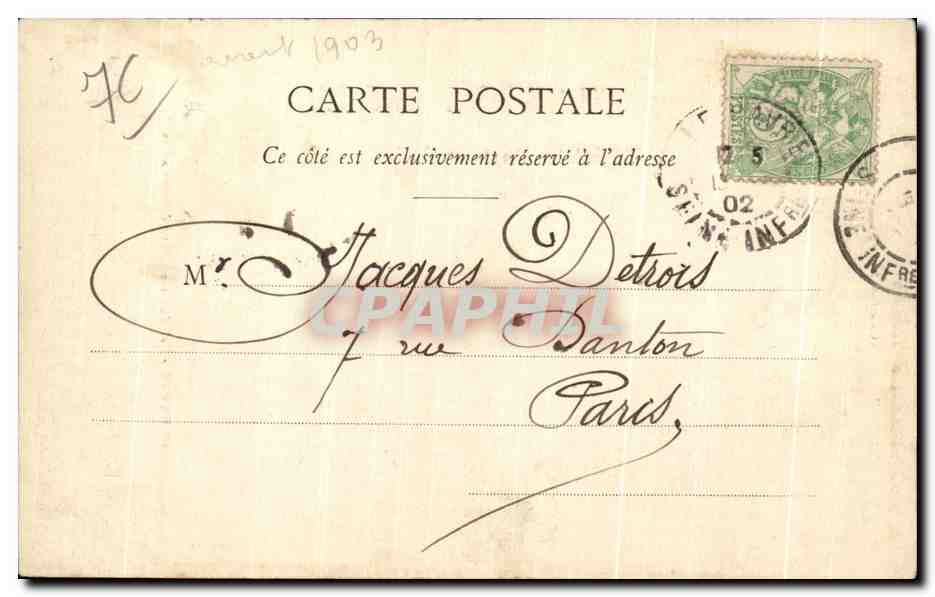 76
avant 1903
CARTE POSTALE
Ce côté est exclusivement réservé à l'adresse
LE HAVRE
5
02
SEINE INFRE
INE INFRE
Mr. Jacques Detrois
CPAPHIL
7 rue Danton
Paris